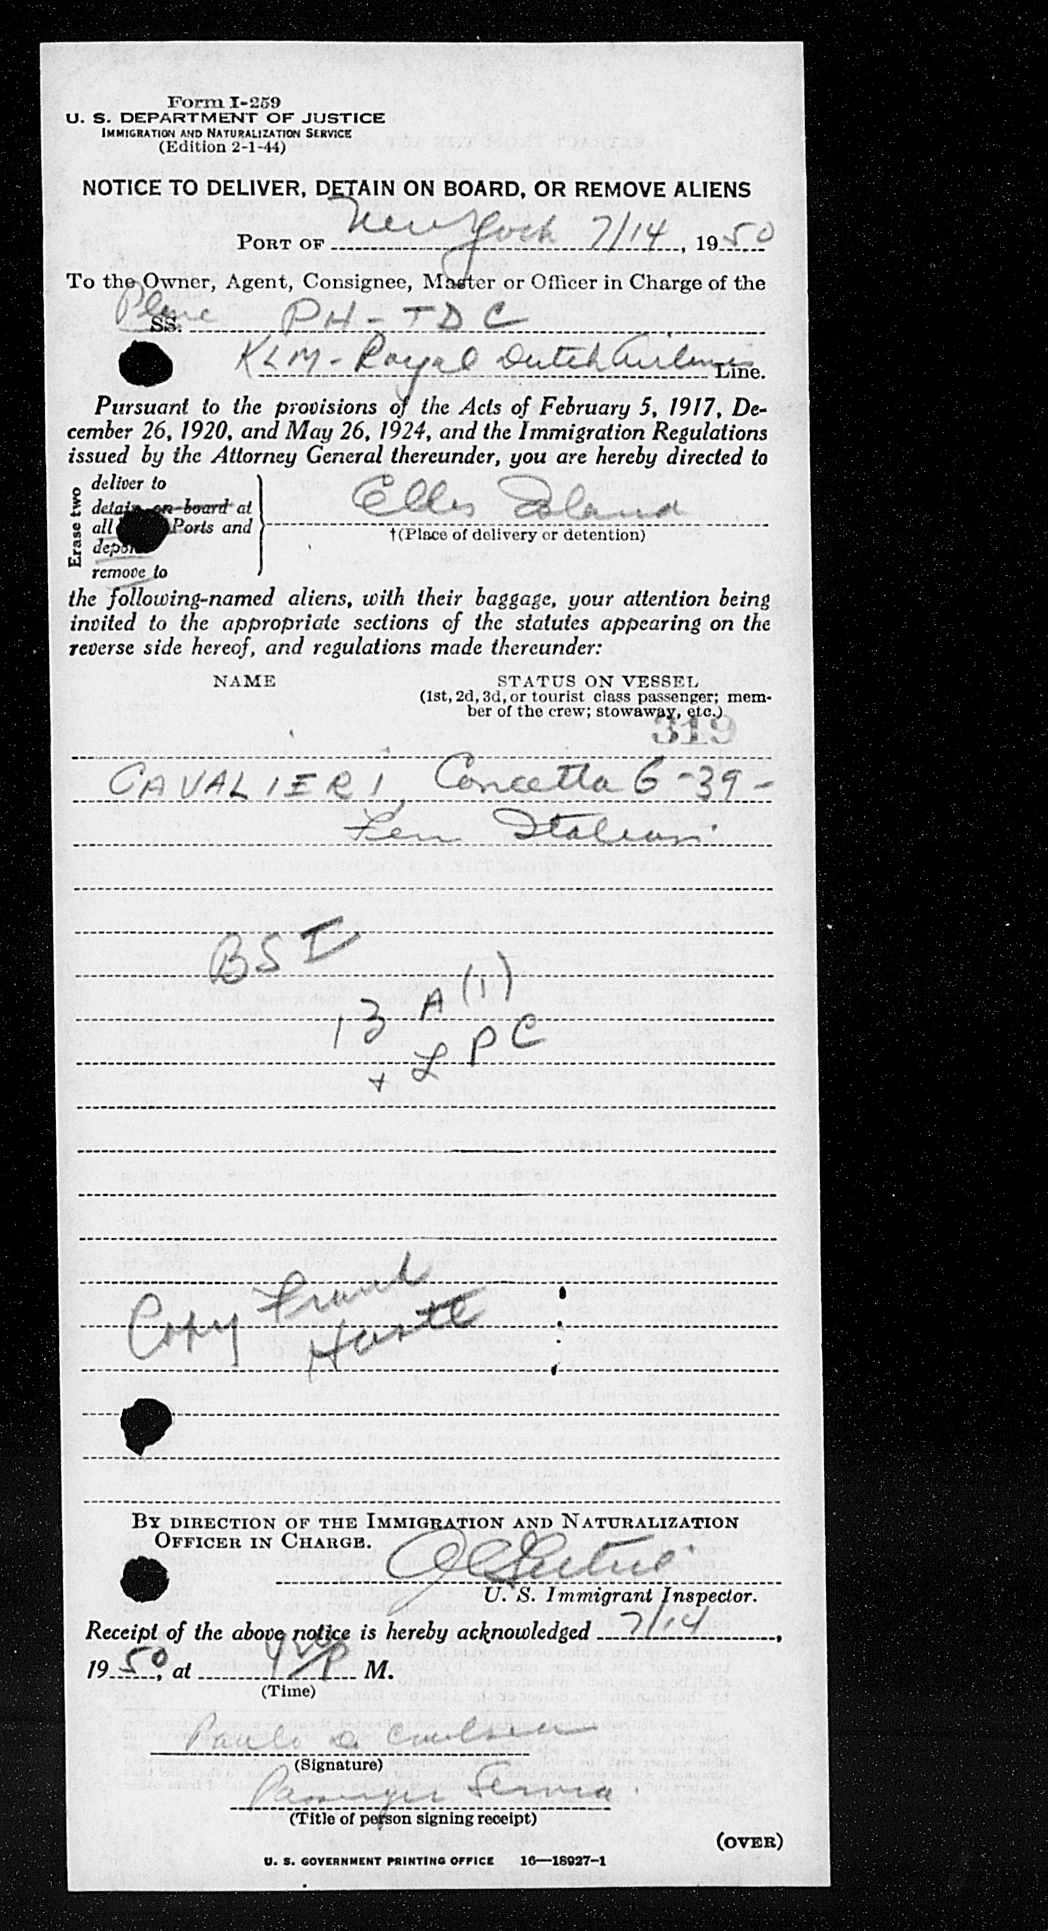 Form I-259
U. S. DEPARTMENT OF JUSTICE
IMMIGRATION AND NATURALIZATION SERVICE
(Edition 2-1-44)
NOTICE TO DELIVER, DETAIN ON BOARD, OR REMOVE ALIENS
PORT OF New York 7/14, 1950
To the Owner, Agent, Consignee, Master or Officer in Charge of the
Plane SS. PH-TDC
KLM-Royal Dutch Airlines Line.
Pursuant to the provisions of the Acts of February 5, 1917, De-
cember 26, 1920, and May 26, 1924, and the Immigration Regulations
issued by the Attorney General thereunder, you are hereby directed to
Erase two
deliver to
detain on board at
all Ports and
remove to
Ellis Island
†(Place of delivery or detention)
the following-named aliens, with their baggage, your attention being
invited to the appropriate sections of the statutes appearing on the
reverse side hereof, and regulations made thereunder:
NAME STATUS ON VESSEL
(1st, 2d, 3d, or tourist class passenger; mem-
ber of the crew; stowaway, etc.)
319
CAVALIERI, Concetta 6-39-
Fem Italian
BSI
13 A(1)
+ LPC
Copy
By DIRECTION OF THE IMMIGRATION AND NATURALIZATION
OFFICER IN CHARGE.
U. S. Immigrant Inspector.
Receipt of the above notice is hereby acknowledged 7/14,
1950, at P M.
(Time)
(Signature)
Passenger Service
(Title of person signing receipt)
(OVER)
U. S. GOVERNMENT PRINTING OFFICE 16—18927-1